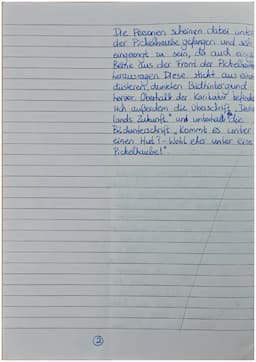 Die Personen scheinen dabei unter
der Pickelhaube gefangen und sehr
eingeengt zu sein, da auch einige
Beine aus der Front der Pickelhaube
herausragen. Diese sticht aus einem
düsteren, dunklen Bildhintergrund
hervor. Oberhalb der Karikatur befindet
sich außerdem die Überschrift „Deutsch
lands Zukunft" und unterhalb die
Bildunterschrift „Kommt es unter
einen Hut? - Wohl eher unter eine
Pickelhaube!".
2